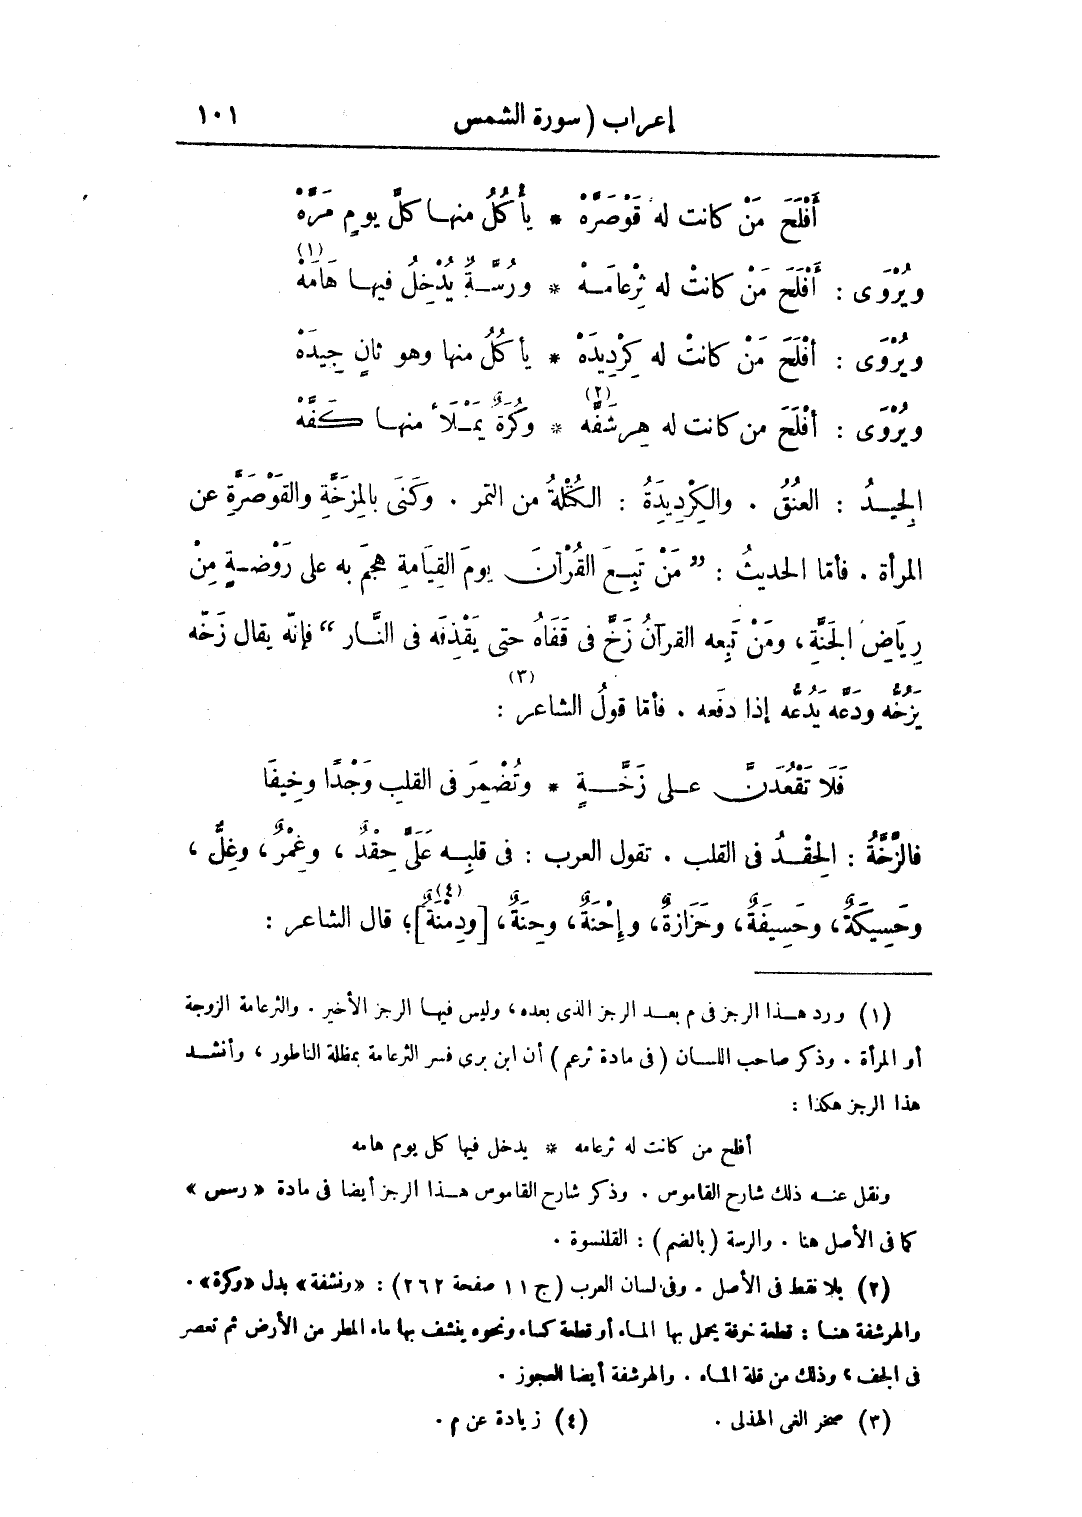 إعراب ( سورة الشمس ١٠١
أَفْلَحَ مَنْ كانت له قَوْصَرَّهْ * يأْكُلُ منهـا كلَّ يومٍ مَرَّهْ
ويُرْوَى : أَفْلَحَ مَنْ كانتْ له ثِرْعامَـهْ * ورُسَّـةٌ يُدْخِلُ فيهـا هَامَهْ (١)
ويُرْوَى : أفْلَحَ مَنْ كانتْ له كِرْدِيدَهْ * يأكُلُ منها وهو ثانٍ جِيدَهْ
ويُرْوَى : أفْلَحَ من كانت له هِرشَفَّه (٢) * وكُرَةٌ يَمْـلَأ منهـا كَفَّهْ
الِجيـدُ : العنُقُ . والكِرْدِيدَةُ : الكُتْلةُ من التمر . وكَنَى بالمِزَخَّةِ والقَوْصَرَّةِ عن
المرأة . فأمّا الحديثُ : ” مَنْ تَبِـعَ القُرْآنَ يومَ القِيَامةِ هجمَ به على رَوْضـةٍ مِنْ
رِيَاضِ الجَنَّةِ ، ومَنْ تَبِعه القرآنُ زَخَّ فى قَفَاهُ حتى يَقْذِفَه فى النَّـار “ فإنّه يقال زَخّه
يَزُخُّه ودَعَّه يَدُعُّه إذا دفَعه . فأمّا قولُ الشاعر (٣) :
فَلَا تَقْعُدَنَّ عـلى زَخَّـــةٍ * وتُضْمِرَ فى القلبِ وَجْدًا وخِيفَا
فالزَّخَّةُ : الحِقْـدُ فى القلب . تقول العرب : فى قلبِـه عَلَىَّ حِقْدٌ ، وغِمْرٌ ، وغِلٌّ ،
وحَسِيكَةٌ ، وحَسِيفَةٌ ، وحَزَازةٌ ، وإحْنَةٌ ، وحِنَةٌ ، [ودِمْنَةٌ] (٤) ؛ قال الشاعر :
(١) ورد هـذا الرجز فى م بعـد الرجز الذى بعده ، وليس فيهـا الرجز الأخير . والثرعامة الزوجة
أو المرأة . وذكر صاحب اللسـان (فى مادة ثرعم) أن ابن برى فسر الثرعامة بمظلة الناطور ، وأنشـد
هذا الرجز هكذا :
أفلح من كانت له ثرعامه * يدخل فيها كل يوم هامه
ونقل عنـه ذلك شارح القاموس . وذكر شارح القاموس هـذا الرجز أيضا فى مادة « رسس »
كما فى الأصل هنا . والرسة (بالضم) : القلنسوة .
(٢) بلا نقط فى الأصل . وفى لسان العرب (ج ١١ صفحة ٢٦٢) : «ونشفة» بدل «وكرة» .
والهرشفة هنـا : قطعة خرقة يحمل بها المـاء أو قطعة كساء ونحوه ينشف بها ماء المطر من الأرض ثم تعصر
فى الجف ، وذلك من قلة المـاء . والهرشفة أيضا العجوز .
(٣) صخر الغى الهذلى . (٤) زيادة عن م .